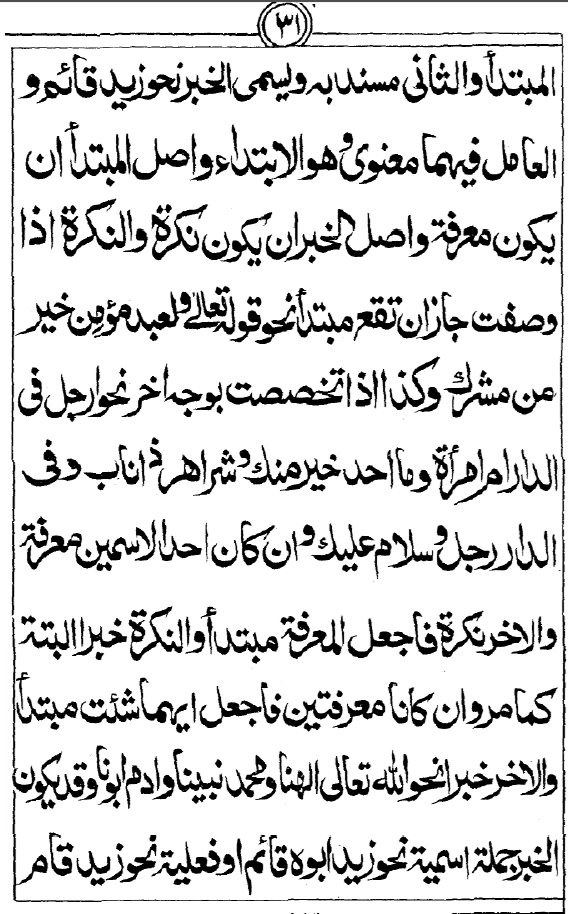 ٣١
المبتدأ والثانى مسند به ويسمى الخبر نحو زيد قائم و
العامل فيهما معنوى وهو الابتداء واصل المبتدأ ان
يكون معرفة واصل الخبر ان يكون نكرة والنكرة اذا
وصفت جاز ان تقع مبتدأ نحو قوله تعالى ولعبد مؤمن خير
من مشرك وكذا اذا تخصصت بوجه اخر نحو ارجل فى
الدار ام امرأة وما احد خير منك وشر اهر ذا ناب وفى
الدار رجل وسلام عليك وان كان احد الاسمين معرفة
والاخر نكرة فاجعل المعرفة مبتدأ والنكرة خبرا البتة
كما مر وان كانا معرفتين فاجعل ايهما شئت مبتدأ
والاخر خبرا نحو الله تعالى الهنا ومحمد نبينا وادم ابونا وقد يكون
الخبر جملة اسمية نحو زيد ابوه قائم او فعلية نحو زيد قام